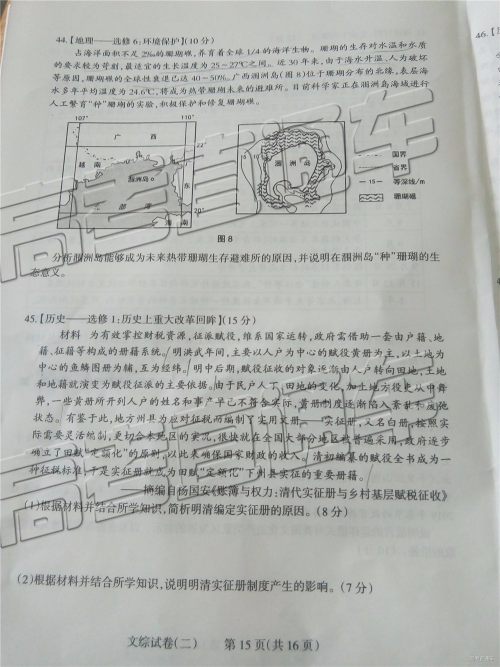 44.【地理——选修6:环境保护】(10分)
占海洋面积不足2‰的珊瑚礁,养育着全球1/4的海洋生物。珊瑚的生存对水温和水质
的要求较为苛刻,最适宜的生长温度为25~27℃之间。近30年来,由于海水升温、人为破坏
等原因,珊瑚礁的全球性衰退已达40~50%。广西涠洲岛(图8)位于珊瑚分布的北缘,表层海
水多年平均温度为24.6℃,将成为热带珊瑚未来的避难所。目前科学家正在涠洲岛海域进行
人工繁育“种”珊瑚的实验,积极保护和修复珊瑚礁。
107° 110°
广 西
越 南
22°
涠洲岛
广
东
北 部 湾
20°
海 南
涠 洲 岛
国界
省界
—15— 等深线/m
珊瑚礁
图8
分析涠洲岛能够成为未来热带珊瑚生存避难所的原因,并说明在涠洲岛“种”珊瑚的生
态意义。
45.【历史——选修1:历史上重大改革回眸】(15分)
材料 为有效掌控财税资源,征派赋役,维系国家运转,政府需借助一套由户籍、地
籍、征籍等构成的册籍系统。明洪武年间,主要以人户为中心的赋役黄册为主,以土地为
中心的鱼鳞图册为辅,互为经纬。明中后期,赋役征收的对象逐渐由人户转向田地,土地
和地籍就演变为赋役征派的主要依据。由于民户人丁、田地的变化,加上地方胥吏从中舞
弊,一些黄册所开列人户的姓名和事产早已不符合实际,黄册制度逐渐陷入紊乱和废弛
状态。有鉴于此,地方州县为应对征税而编制了实用文册——实征册,又名白册,按照实
际需要灵活编制,更切合本地区的实况,很快就在全国大部分地区被普遍采用,政府逐步
确立了田赋“定额化”的原则,以此来确保国家财政的收入。清初编纂的赋役全书成为一
种征税标准,于是实征册就成为田赋“定额化”下州县实征的重要册籍。
摘编自杨国安《账簿与权力:清代实征册与乡村基层赋税征收》
(1)根据材料并结合所学知识,简析明清编定实征册的原因。(8分)
(2)根据材料并结合所学知识,说明明清实征册制度产生的影响。(7分)
文综试卷(二) 第15页(共16页)
46.【
高考直通车